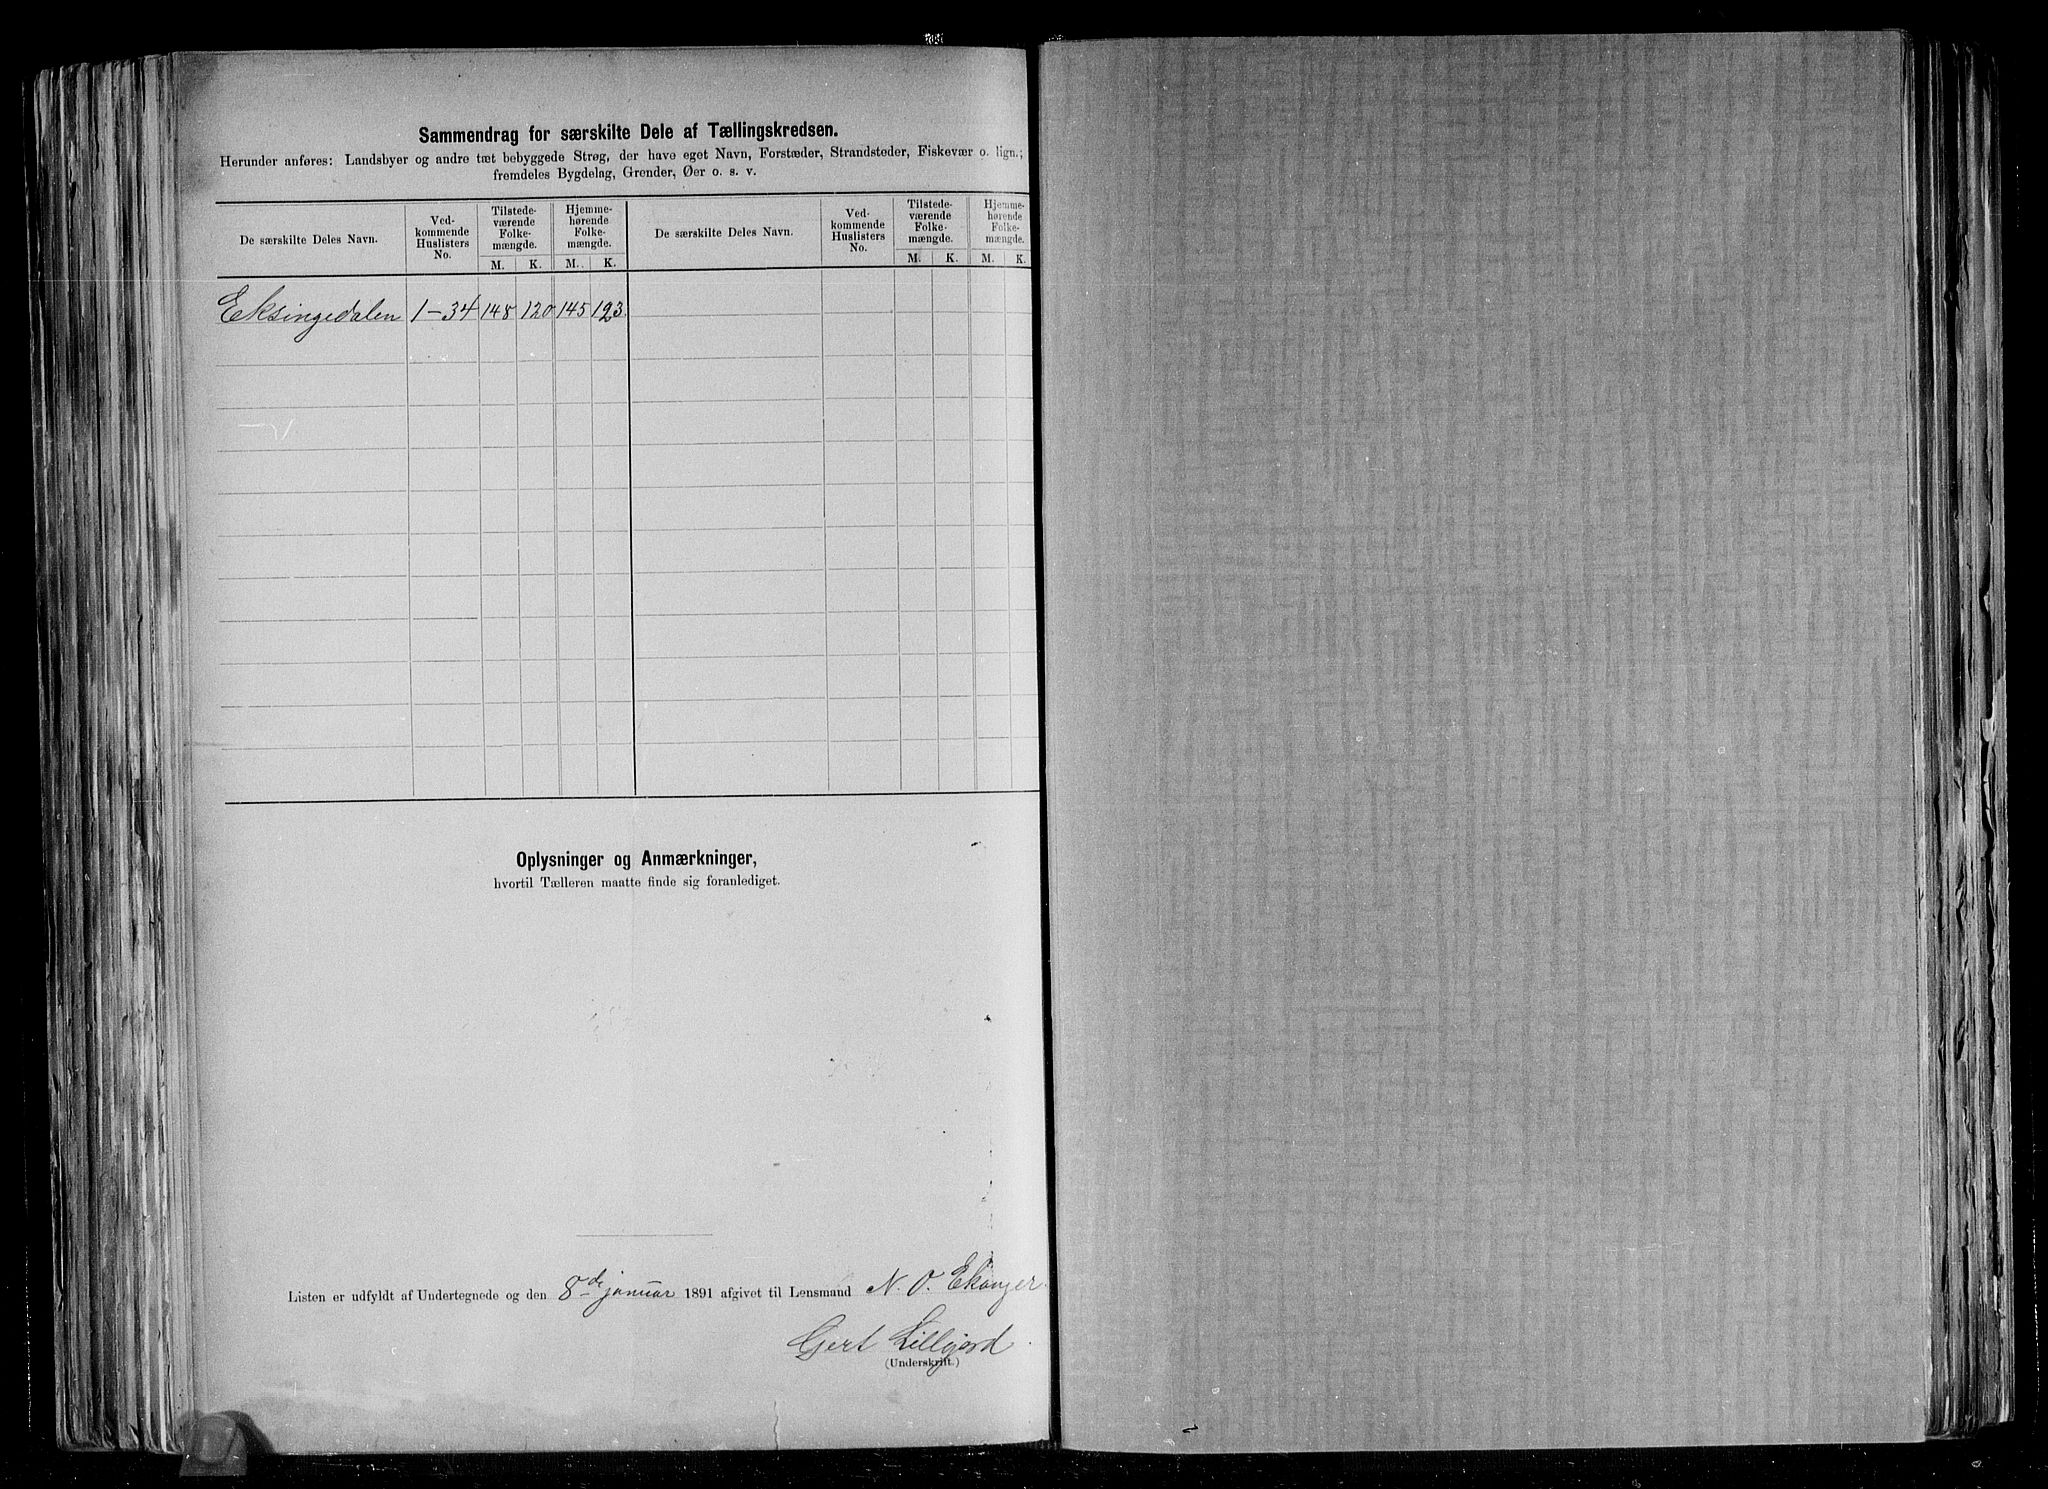 Sammendrag for særskilte Dele af Tællingskredsen.
Herunder anføres: Landsbyer og andre tæt bebyggede Strøg, der have eget Navn, Forstæder, Strandsteder, Fiskevær o. lign.;
fremdeles Bygdelag, Grender, Øer o. s. v.
De særskilte Deles Navn. Ved-kommende Huslisters No. Tilstede-værende Folke-mængde. Hjemme-hørende Folke-mængde. De særskilte Deles Navn. Ved-kommende Huslisters No. Tilstede-værende Folke-mængde. Hjemme-hørende Folke-mængde.
M. K. M. K. M. K. M. K.
Eksingedalen 1-34 148 120 145 123.
Oplysninger og Anmærkninger,
hvortil Tælleren maatte finde sig foranlediget.
Listen er udfyldt af Undertegnede og den 8de januar 1891 afgivet til Lensmand N. O. Ekanger
Gert Lillejord
(Underskrift.)